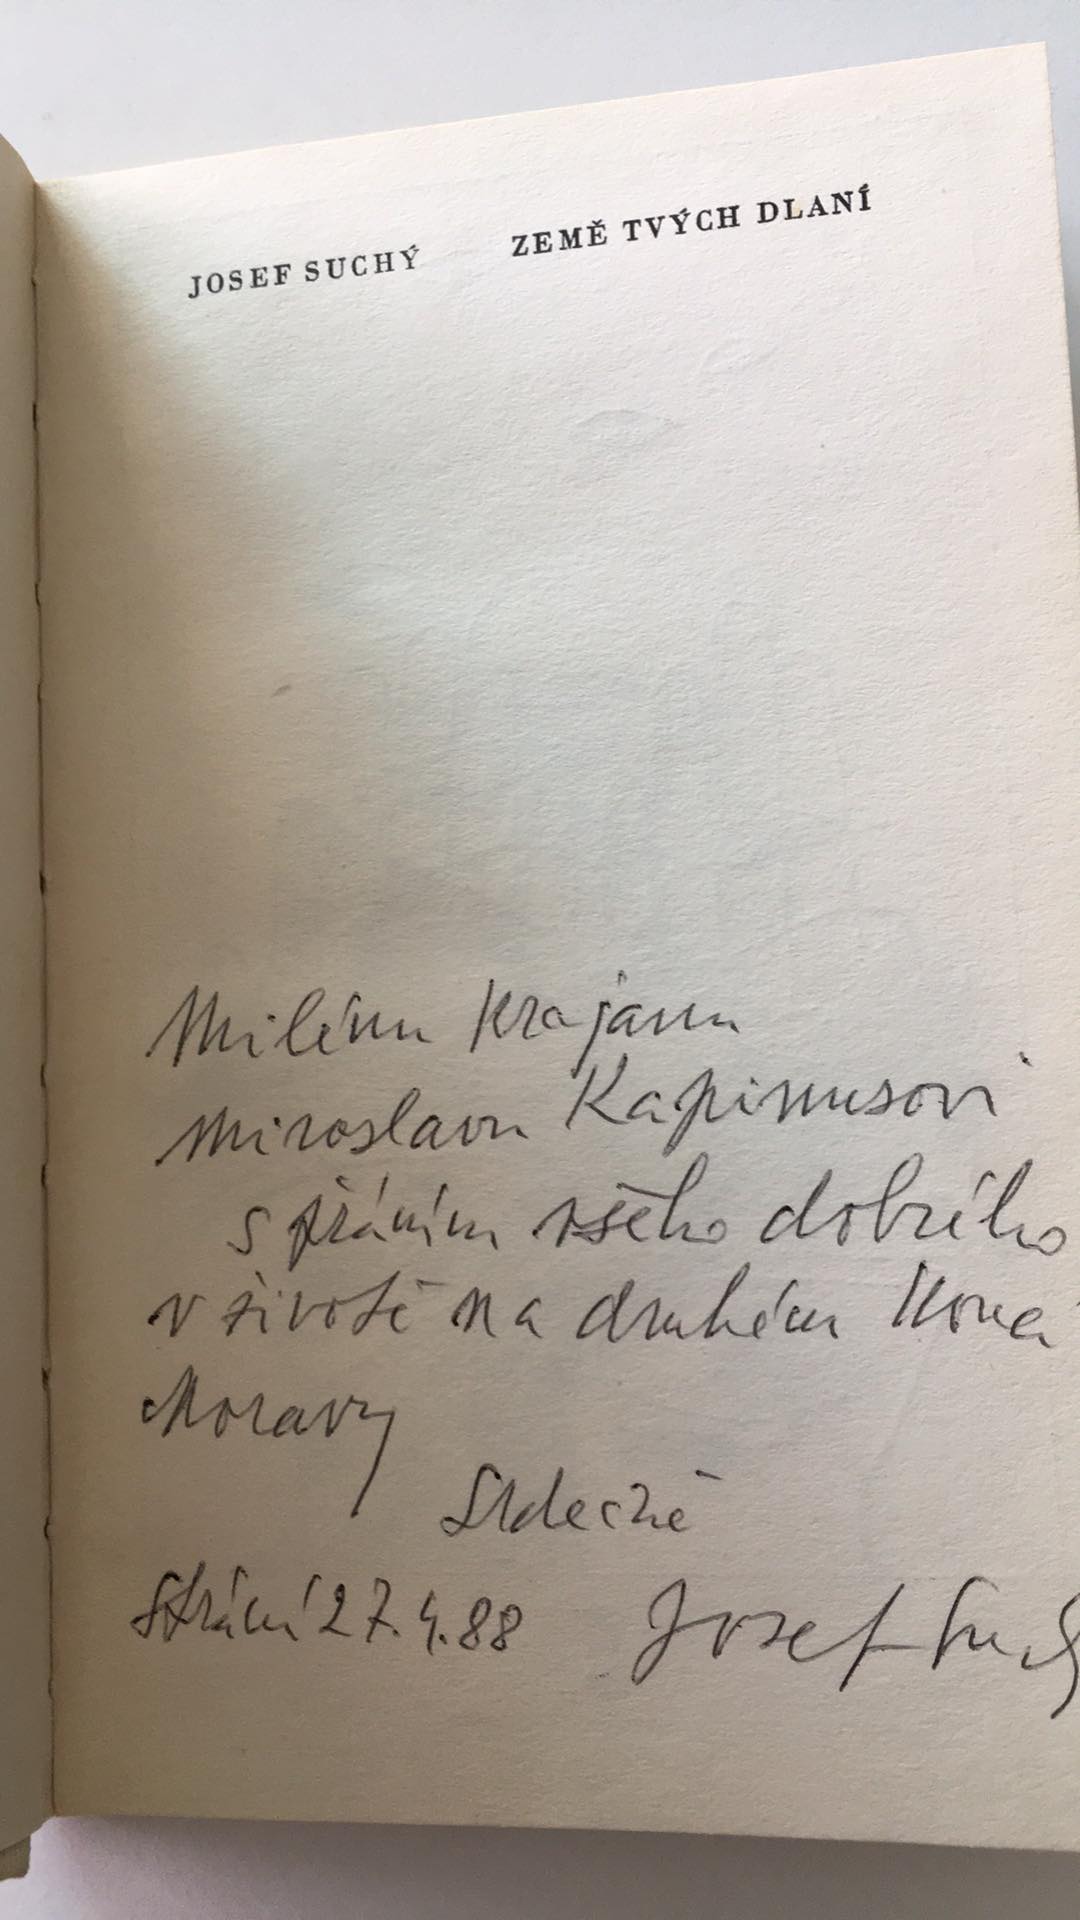 JOSEF SUCHÝ ZEMĚ TVÝCH DLANÍ
Milému krajanu
Miroslavu Kapinusovi
s přáním všeho dobrého
v životě na druhém
Moravy
Srdečně
Strání 27.4.88 Josef Suchý